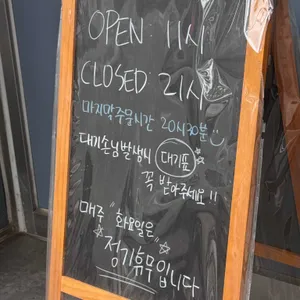 OPEN: 11시
CLOSED: 21시
마지막주문시간 20시30분
대기손님발생시 대기표
꼭 받아주세요!!
매주 "화요일은"
정기휴무입니다